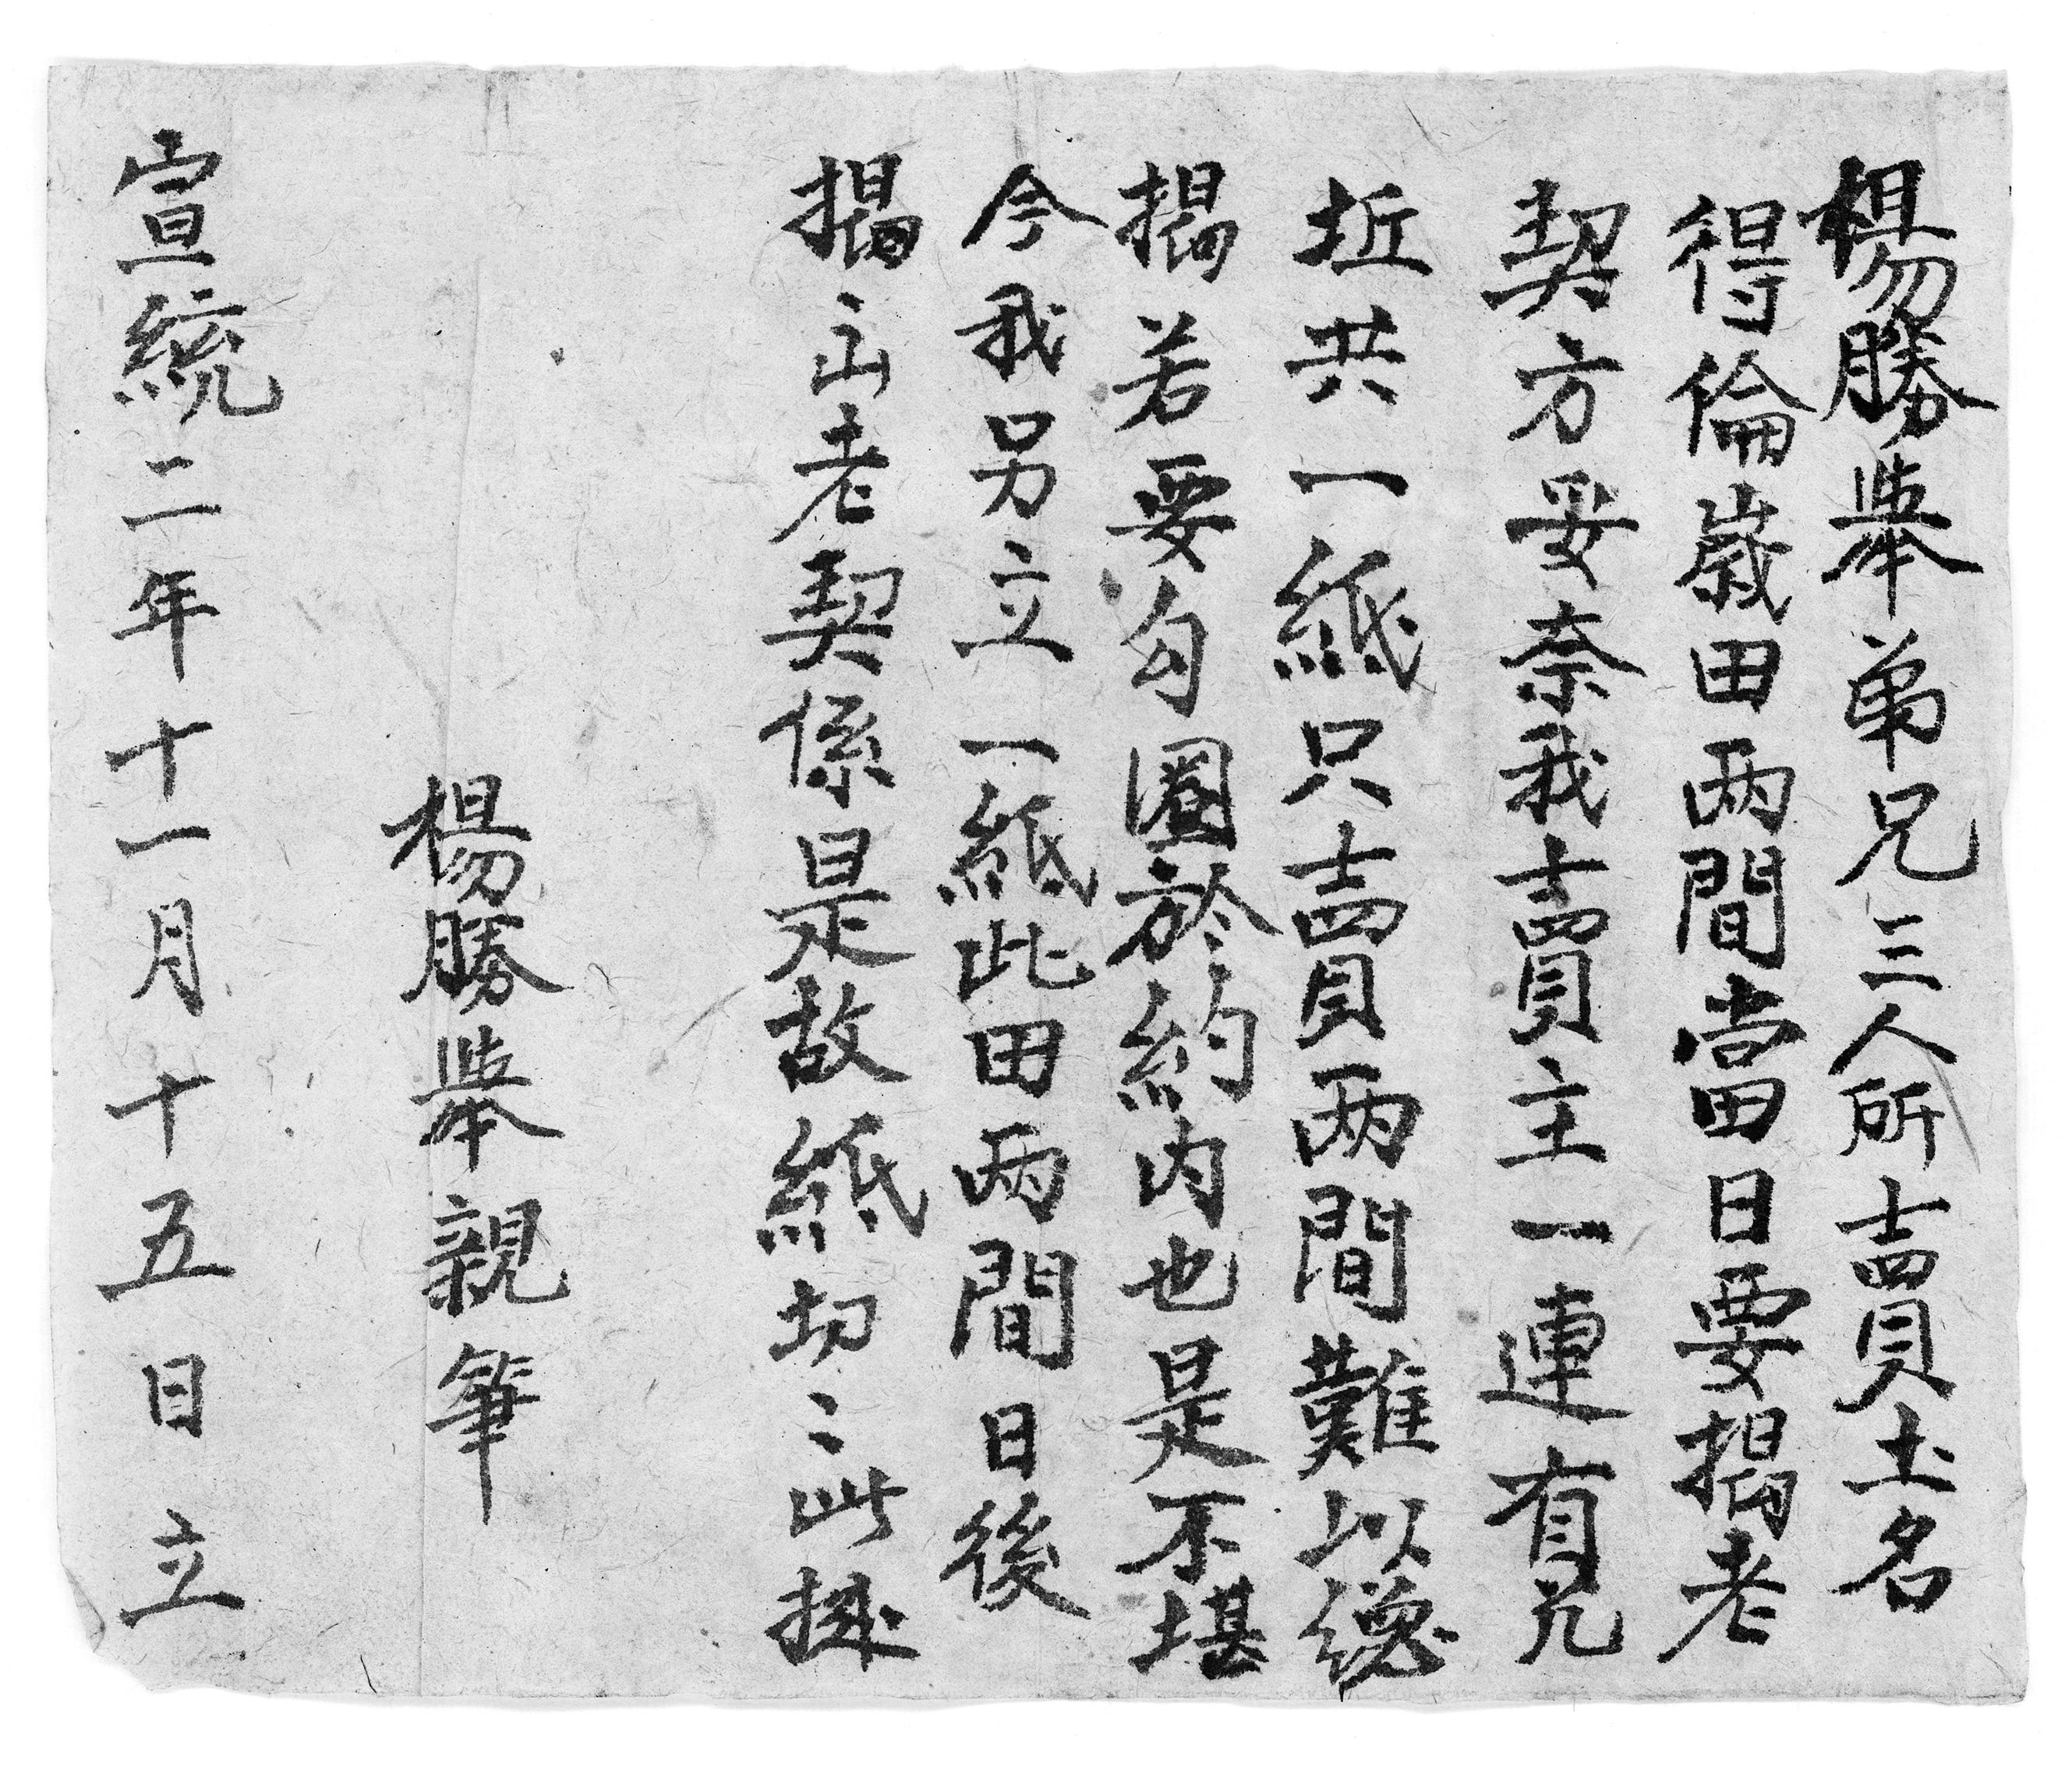 楊勝舉弟兄三人所賣土名
得倫嵗田兩間當日要揭老
契方妥奈我賣主一連有几
坵共一紙只賣两間難以總
揭若要勾圈於約内也是不堪
今我另立一紙此田兩間日後
揭出老契係是故紙切〻此據
楊勝舉親筆
宣統二年十一月十五日立